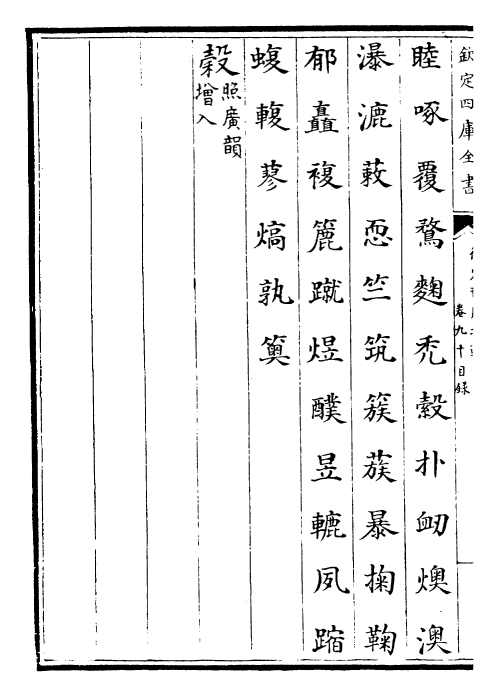 欽定四庫全書
卷九十目錄
睦啄覆鶩麴禿縠扑衄燠澳
瀑漉蔌恧竺筑簇蔟暴掬鞠
郁矗複簏蹴煜醭昱轆夙蹜
蝮輹蓼熇孰薁
糓照廣韻
增入